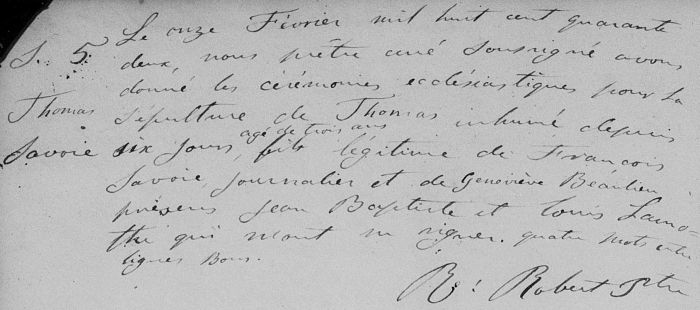 Le onze Février mil huit cent quarante
S. 5
deux, nous prêtre curé soussigné avons
donné les cérémonies ecclésiastiques pour la
Thomas
sépulture de Thomas inhumé depuis
agé de trois ans
Savoie
six jours, fils légitime de François
Savoie, journalier et de Geneviève Beaulieu
présens Jean Baptiste et Louis Lamo-
the qui n'ont su signer. quatre mots entre
lignes bons.
Robert Ptre